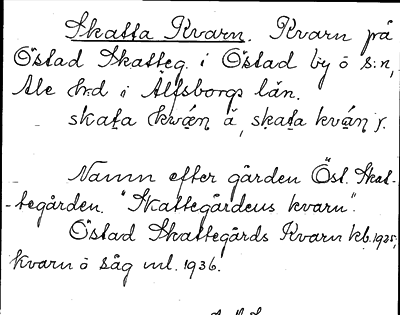 Skatta Kvarn. Kvarn på
Östad Skatteg. i Östad by o s:n,
Ale hrd i Älfsborgs län.
skat̯a kvǽn̯ ā, skat̯a kván̯ r.
Namn efter gården Öst. Skat-
-tegården. "Skattegårdens kvarn".
Östad Skattegårds Kvarn kb. 1925,
kvarn o såg ml. 1936.